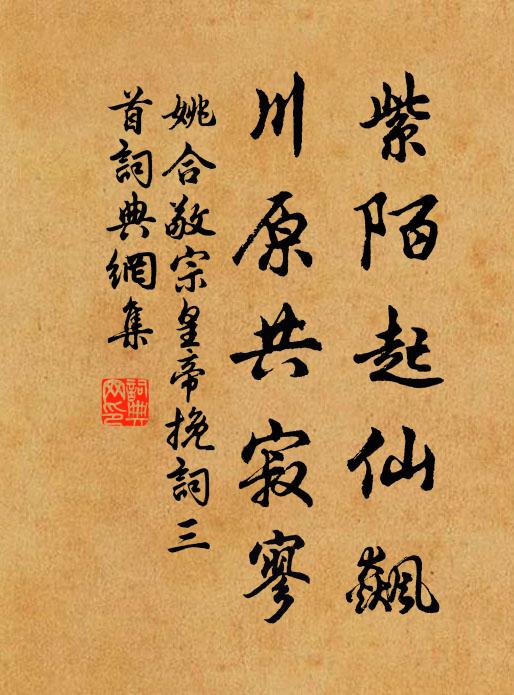 紫陌起仙飆
川原共寂寥
姚合敬宗皇帝挽詞三
首詞典網集
詞典網印